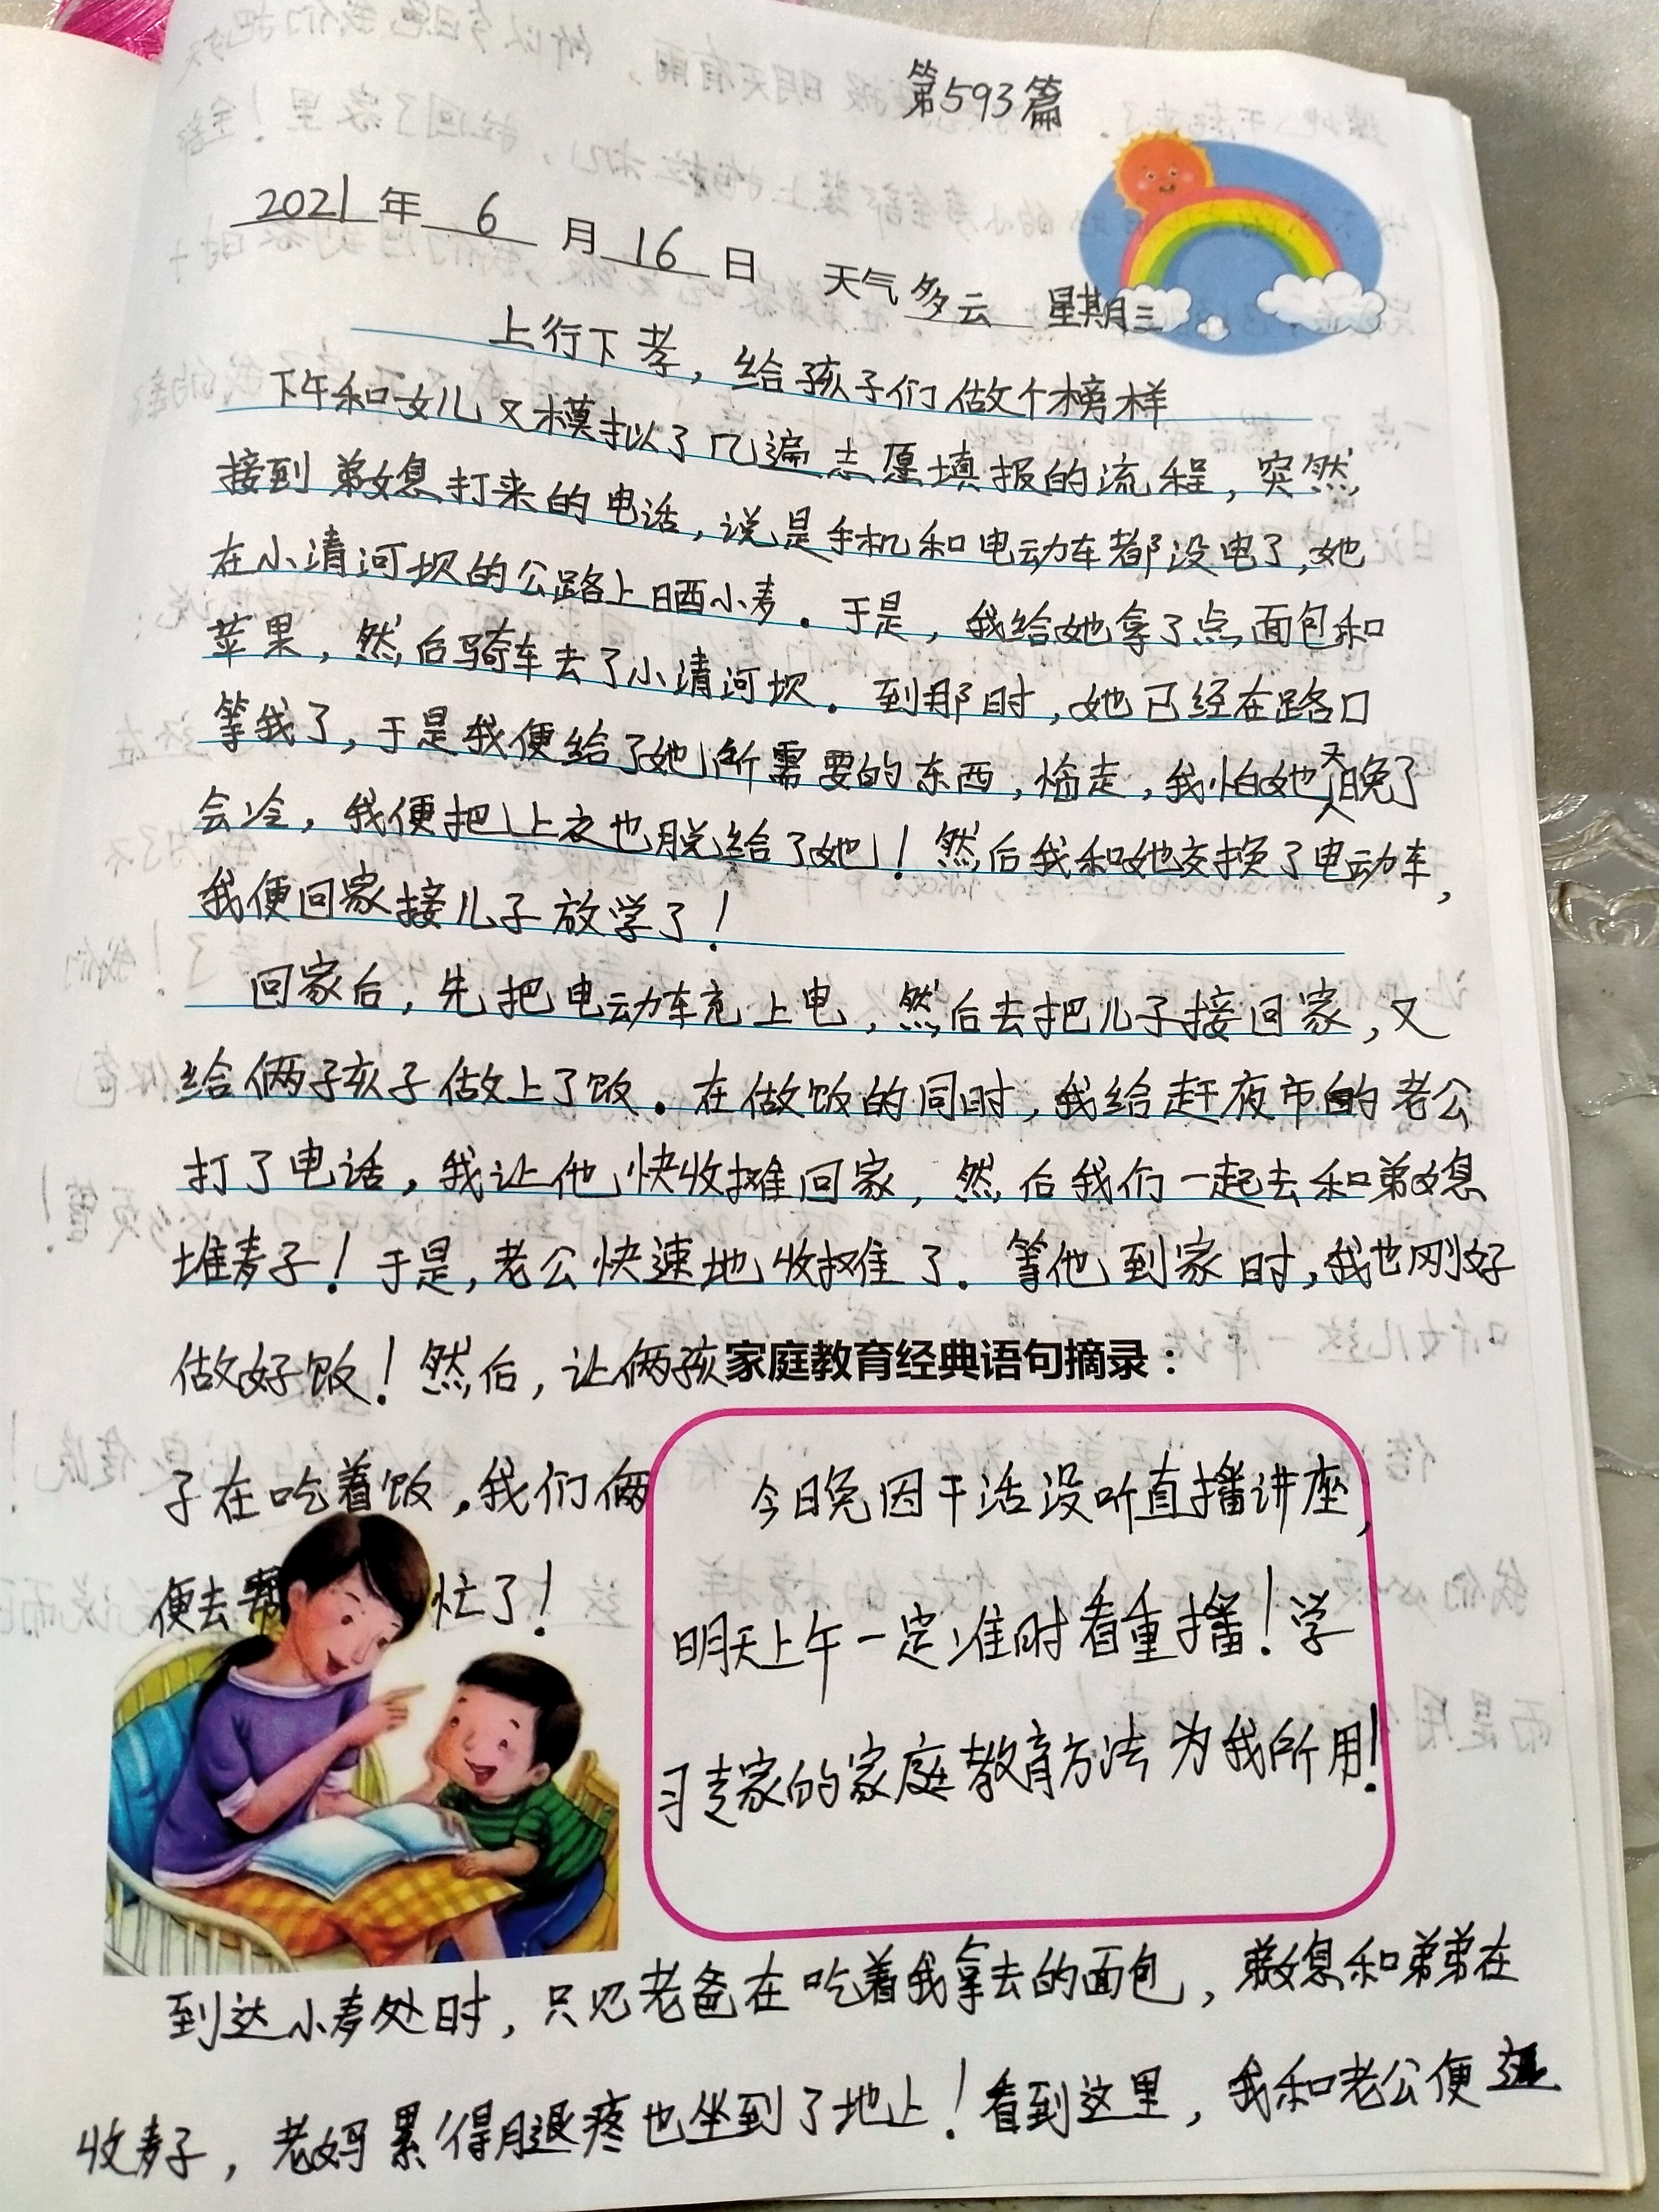 第593篇
2021年6月16日 天气多云 星期三
上行下孝，给孩子们做个榜样
下午和女儿又模拟了几遍志愿填报的流程，突然
接到弟媳打来的电话，说是手机和电动车都没电了，她
在小清河坝的公路上晒小麦。于是，我给她拿了点面包和
苹果，然后骑车去了小清河坝。到那时，她已经在路口
等我了，于是我便给了她所需要的东西，临走，我怕她天晚了
会冷，我便把上衣也脱给了她！然后我和她交换了电动车，
我便回家接儿子放学了！
回家后，先把电动车充上电，然后去把儿子接回家，又
给俩孩子做上了饭。在做饭的同时，我给赶夜市的老公
打了电话，我让他快收摊回家，然后我们一起去和弟媳
堆麦子！于是，老公快速地收摊了。等他到家时，我也刚好
做好饭！然后，让俩孩
子在吃着饭，我们俩
便去帮忙了！
家庭教育经典语句摘录：
今日晚因干活没听直播讲座，
明天上午一定准时看重播！学
习专家的家庭教育方法为我所用！
到达小麦处时，只见老爸在吃着我拿去的面包，弟媳和弟弟在
收麦子，老妈累得腿疼也坐到了地上！看到这里，我和老公便